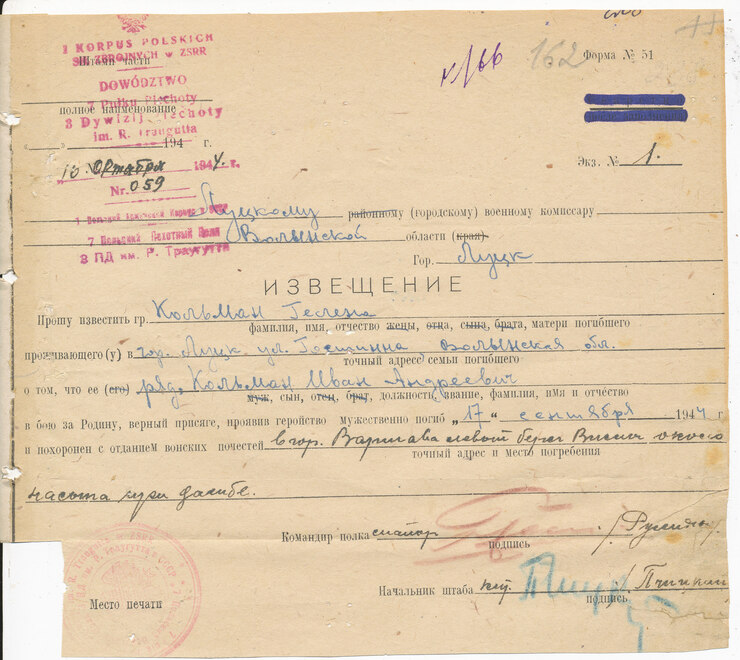 I KORPUS POLSKICH
SIŁ ZBROJNYCH w ZSRR
Штамп части
DOWÓDZTWO
7 Pułku Piechoty
полное наименование
3 Dywizji Piechoty
im. R. Traugutta
194 г.
"10" октября 1944 г.
Nr. 059
7 Польский Пехотный Полк
3 ПД им. Р. Траугутта
162
Форма № 51
Экз. № 1.
Луцкому районному (городскому) военному комиссару
Волынской области (края)
Гор. Луцк
ИЗВЕЩЕНИЕ
Прошу известить гр. Кольман Гелена
фамилия, имя, отчество жены, отца, сына, брата, матери погибшего
проживающего(у) в гор. Луцк ул. Волынская обл.
точный адрес семьи погибшего
о том, что ее (его) ряд. Кольман Иван Андреевич
муж, сын, отец, брат, должность, звание, фамилия, имя и отчество
в бою за Родину, верный присяге, проявив геройство мужественно погиб "17" сентября 1944 г.
и похоронен с отданием вонских почестей в гор. Варшава левый берег Висли около
точный адрес и место погребения
Командир полка майор
подпись
Начальник штаба кпт.
подпись
Место печати